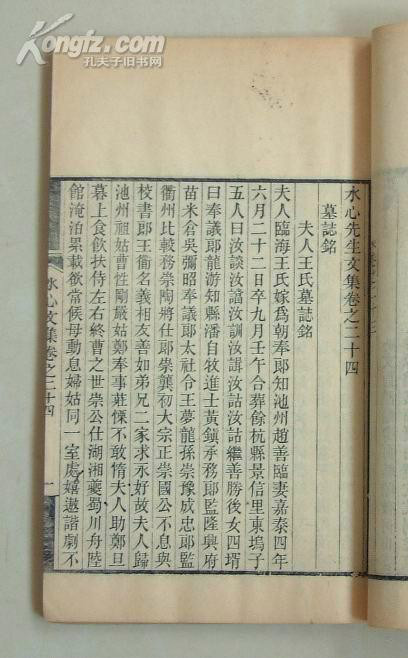 Kongfz.com
孔夫子旧书网
水心先生文集卷之二十四
墓誌銘
夫人王氏墓誌銘
夫人臨海王氏嫁爲朝奉郎知池州趙善臨妻嘉泰四年
六月二十二日卒九月壬午合葬餘杭縣景信里東塢子
五人曰汝談汝譡汝訓汝諿汝詁汝詰繼善勝後女四壻
曰奉議郎龍游知縣潘自牧進士黃鎭承務郎監隆興府
苗米倉吳彌昭奉議郎太社令王夢龍孫崇豫成忠郎監
衢州比較務崇陶將仕郎崇龔初大宗正崇國公不息與
校書郎王衢名義相友善如弟兄二家求永好故夫人歸
池州祖姑曹性剛嚴姑鄭奉事莊慄不敢惰夫人助鄭旦
暮上食飲扶侍左右終曹之世崇公仕湖湘夔蜀川舟陸
館淹泊累載欲常候母動息婦姑同一室處嬉遨諧劇不
水心文集卷之二十四
一